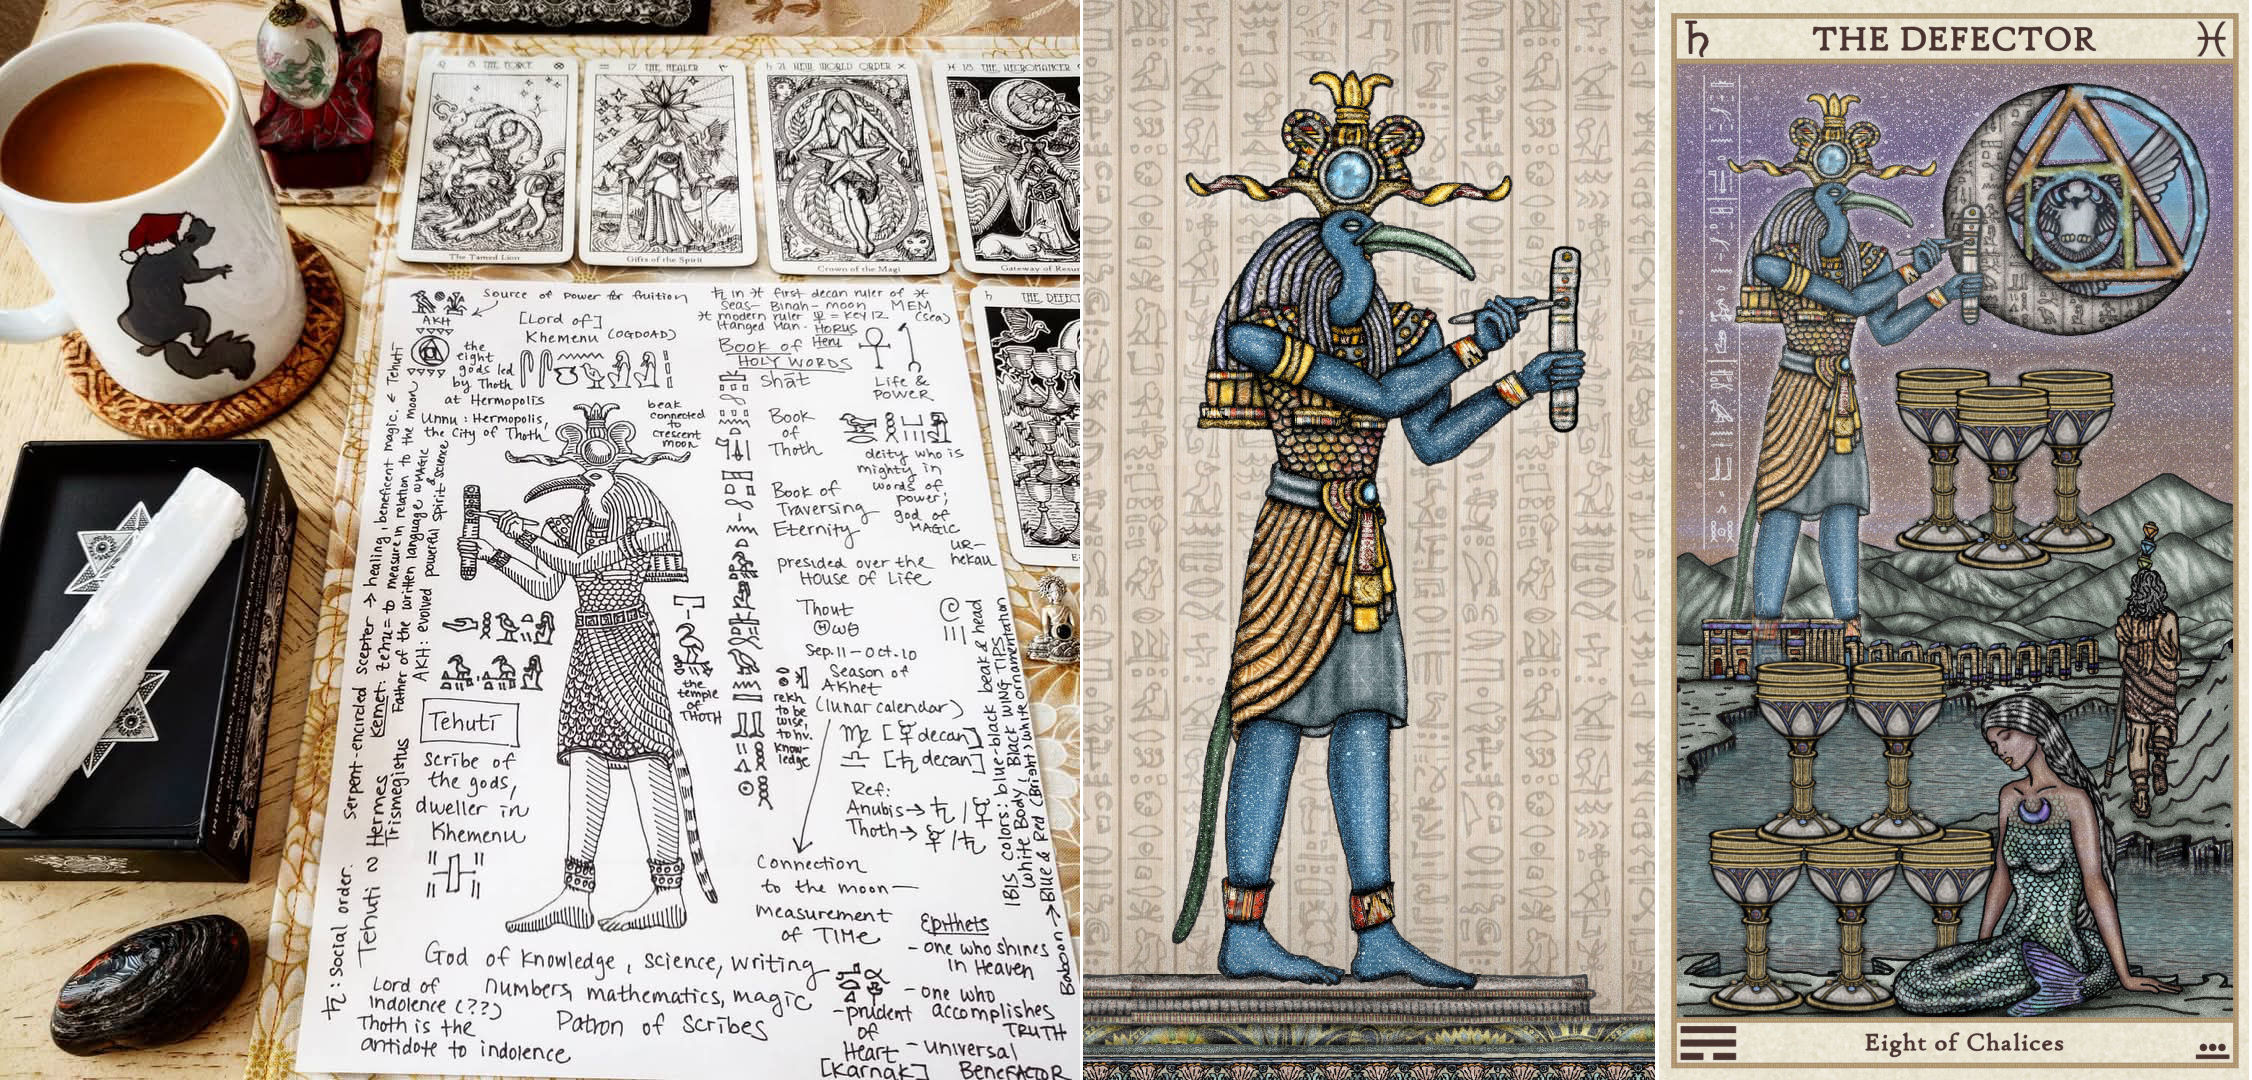 ♌ 8. THE FORCE ⊗
The Tamed Lion
♒ 17. THE HEALER
Gifts of the Spirit
♄ 21. NEW WORLD ORDER
Crown of the Magi
♓ 18. THE NECROMANCER
Gateway of Resur
♄ THE DEFECT
Source of power for fruition
AKH
[Lord of]
Khemenu (OGDOAD)
the
eight
gods led
by Thoth
at Hermopolis
Unnu: Hermopolis,
the City of Thoth
♄ in ♓ first decan ruler of ♓
Seas – Binah – moon MEM
(sea)
♓ modern ruler ♆ = Key 12
Hanged Man.
HORUS
Heru
Book of
HOLY WORDS
shāt
Life &
POWER
beak
connected
to
crescent
moon
Book
of
Thoth
deity who is
mighty in
words of
power;
god of
MAGIC
ur-
hekau
Book of
Traversing
Eternity
presided over the
House of Life
Thout
Θωθ
Sep. 11 – Oct. 10
Season of
Akhet
(lunar calendar)
♍ [☿ decan]
♎ [♄ decan]
Ref:
Anubis → ♄ / ☿
Thoth → ☿ / ♄
rekh
to be
wise,
to hv.
know-
ledge
the
temple
of
THOTH
Tehutī
scribe of
the gods,
dweller in
Khemenu
Connection
to the moon —
measurement
of TIME
Epithets
- one who shines
in Heaven
- one who
accomplishes
TRUTH
- prudent
of
Heart
[Karnak]
- universal
BENEFACTOR
God of knowledge, science, writing
numbers, mathematics, magic
Patron of Scribes
Lord of
indolence (??)
Thoth is the
antidote to indolence
♄: Social order.
Serpent-encircled scepter → healing, beneficent magic.
Tehuti ~ Hermes
Trismegistus
Kemet: tehu = to measure in relation to the moon ← Tehutī
Father of the written language
AKH: evolved powerful spirit
IBIS colors: blue-black beak & head
White Body / Black WING TIPS
Baboon → Blue & Red (Bright) white ornamentation
♄ THE DEFECTOR ♓
Eight of Chalices